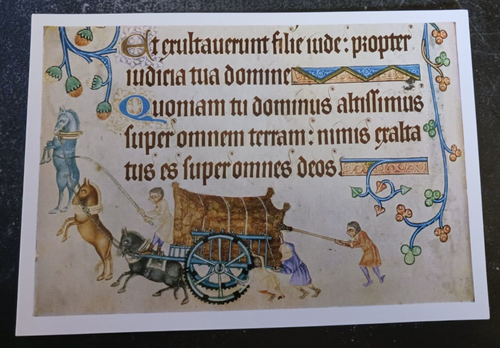 Et exultauerunt filie iude : propter
iudicia tua domine
Quoniam tu dominus altissimus
super omnem terram : nimis exalta
tus es super omnes deos.